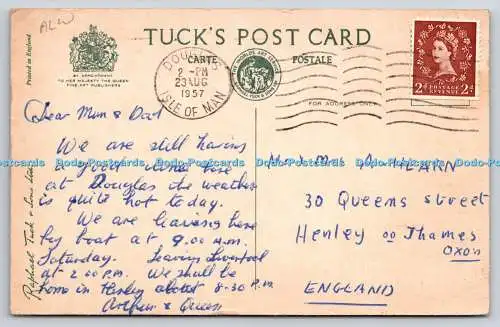 ALW
TUCK'S POST CARD
CARTE POSTALE
Printed in England
BY APPOINTMENT
TO HER MAJESTY THE QUEEN
FINE ART PUBLISHERS
DOUGLAS
2 - PM
23 AUG
1957
ISLE OF MAN
FOR ADDRESS ONLY
POSTAGE
REVENUE
2d 2d
Dear Mum & Dad
We are still having
a good time here
at Douglas the weather
is quite hot today.
We are leaving here
by boat at 9.00 A.M.
Saturday. Leaving Liverpool
at 2.00 P.M. We shall be
home in Henley about 8-30 P.M.
Arthur & Queen
Mr & Mrs A. HEARN
30 Queens Street
Henley on Thames
OXON
ENGLAND
Raphael Tuck & Sons Ltd
Dodo-Postcards Dodo-Postcards Dodo-Postcards Dodo-Postcards Dodo-Postcards